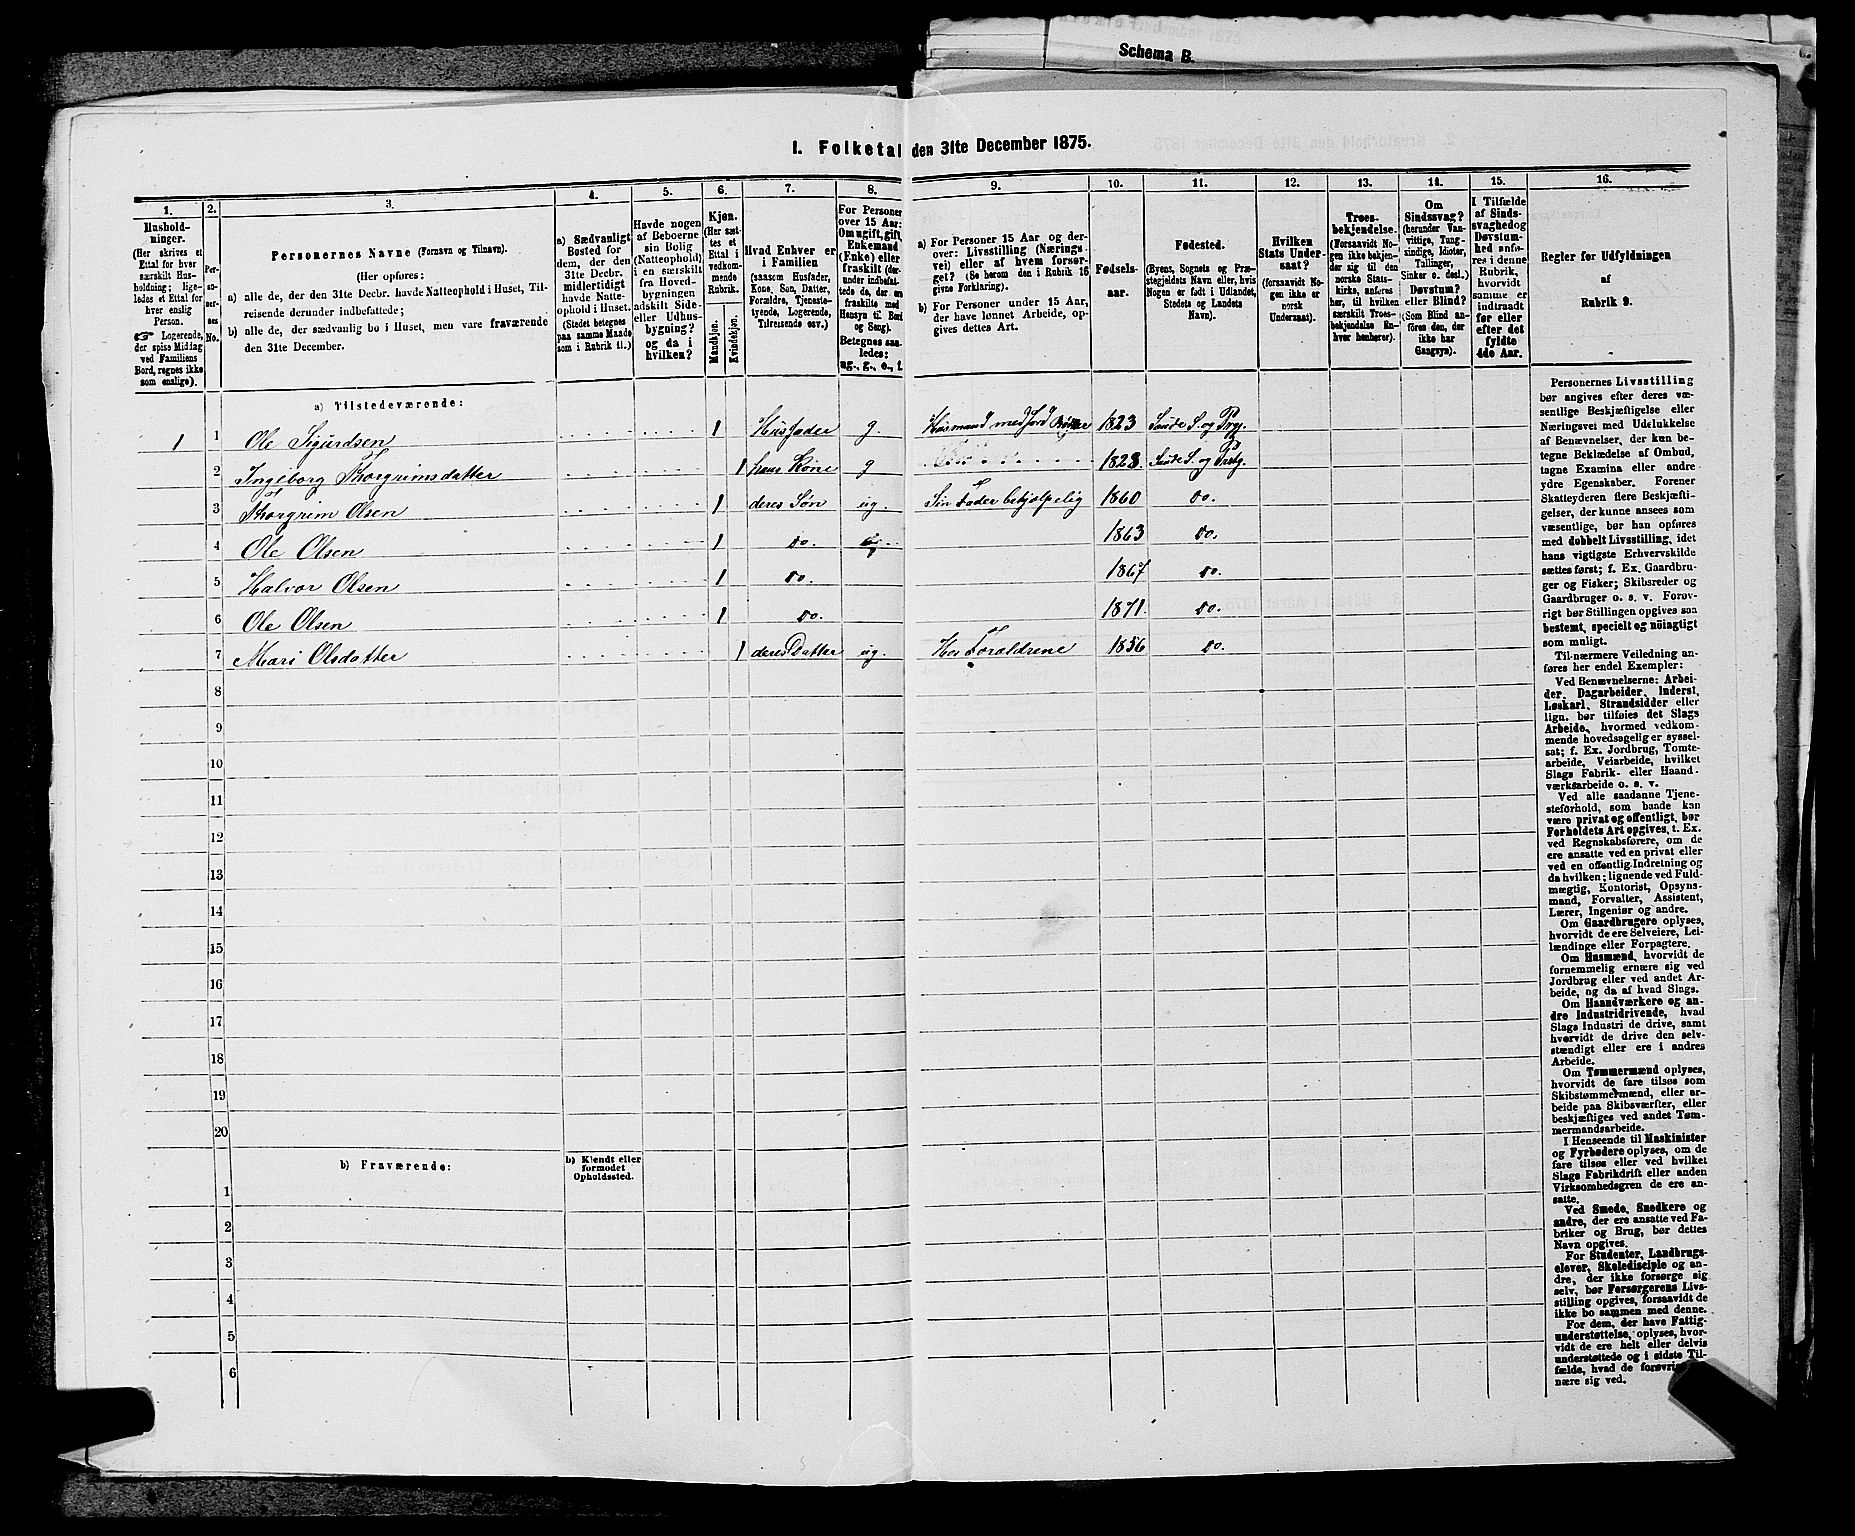 Schema B.
1. Folketal den 31te December 1875.
1. 2. 3. 4. 5. 6. 7. 8. 9. 10. 11. 12. 13. 14. 15. 16.
Husholdninger.
(Her skrives et Ettal for hver særskilt Husholdning; ligeledes et Ettal for hver enslig Person.
☞ Logerende, der spise Middag ved Familiens Bord, regnes ikke som enslige).
Personernes No.
Personernes Navne (Fornavn og Tilnavn).
(Her opføres:
a) alle de, der den 31te Decbr. havde Natteophold i Huset, Tilreisende derunder indbefattede;
b) alle de, der sædvanlig bo i Huset, men vare fraværende den 31te December.
a) Sædvanligt Bosted for dem, der den 31te Decbr. midlertidigt havde Natteophold i Huset. (Stedet betegnes paa samme Maade som i Rubrik 11.)
Havde nogen af Beboerne sin Bolig (Natteophold) i en særskilt fra Hovedbygningen adskilt Side- eller Udhusbygning? og da i hvilken?
Kjøn. (Her sættes et Ettal i vedkommende Rubrik.
Mandkjøn. Kvindekjøn.
Hvad Enhver er i Familien
(saasom Husfader, Kone, Søn, Datter, Forældre, Tjenestetyende, Logerende, Tilreisende osv.)
For Personer over 15 Aar: Om ugift, gift, Enkemand (Enke) eller fraskilt (derunder indbefattede de, der ere fraskilte med Hensyn til Bord og Seng). Betegnes saaledes: ug., g., e., f.
a) For Personer 15 Aar og derover: Livsstilling (Næringsvei) eller af hvem forsørget? (Se herom den i Rubrik 16 givne Forklaring.)
b) For Personer under 15 Aar, der have lønnet Arbeide, opgives dettes Art.
Fødselsaar.
Fødested.
(Byens, Sognets og Præstegjeldets Navn eller, hvis Nogen er født i Udlandet, Stedets og Landets Navn).
Hvilken Stats Undersaat?
(forsaavidt Nogen ikke er norsk Undersaat).
Troesbekjendelse.
(Forsaavidt Nogen ikke bekjender sig til den norske Statskirke, anføres her, til hvilken særskilt Troesbekjendelse Enhver henhører).
Om Sindssvag? (herunder Vanvittige, Tungsindige, Idioter, Tullinger, Sinker o. desl.) Døvstum? eller Blind? (Som Blind anføres den, der ikke har Gangsyn).
I Tilfælde af Sindssvaghed og Døvstumhed anføres i denne Rubrik, hvorvidt samme er indtraadt før eller efter det fyldte 4de Aar.
Regler for Udfyldningen af Rubrik 9.
a) Tilstedeværende:
1 1 Ole Sigurdsen 1 Husfader g. Husmand med Jord 1823 Saude S. og Prg.
2 Ingeborg Thorgrimsdatter 1 hans Kone g 1828 Saude S. og Prstg.
3 Thorgrim Olsen 1 deres Søn ug. Sin Fader behjælpelig 1860 do.
4 Ole Olsen 1 do. 1863 do.
5 Halvor Olsen 1 do. 1867 do.
6 Ole Olsen 1 do. 1871. do.
7 Mari Olsdatter 1 deres Datter ug. Hos Forældrene 1856 do.
8
9
10
11
12
13
14
15
16
17
18
19
20
b) Fraværende: b) Kjendt eller formodet Opholdssted.
1
2
3
4
5
6
Personernes Livsstilling
bør angives efter deres væ-
sentlige Beskjæftigelse eller
Næringsvei med Udelukkelse
af Benævnelser, der kun be-
tegne Beklædelse af Ombud,
tagne Examina eller andre
ydre Egenskaber. Forener
Skatteyderen flere Beskjæfti-
gelser, der kunne ansees som
væsentlige, bør han opføres
med dobbelt Livsstilling, idet
hans vigtigste Erhvervskilde
sættes først; f. Ex. Gaardbru-
ger og Fisker; Skibsreder og
Gaardbruger o. s. v. Forøv-
rigt bør Stillingen opgives saa
bestemt, specielt og nöiagtigt
som muligt.
Til nærmere Veiledning an-
føres her endel Exempler:
Ved Benævnelserne: Arbei-
der, Dagarbeider, Inderst,
Løskarl, Strandsidder eller
lign. bør tilføies det Slags
Arbeide, hvormed vedkom-
mende hovedsagelig er syssel-
sat; f. Ex. Jordbrug, Tomte-
arbeide, Veiarbeide, hvilket
Slags Fabrik- eller Haand-
værksarbeide o. s. v.
Ved alle saadanne Tjene-
steforhold, som baade kan
være privat og offentligt, bør
Forholdets Art opgives, t. Ex.
ved Regnskabsførere, om de
ere ansatte ved en privat eller
ved en offentlig Indretning og
da hvilken; lignende ved Fuld-
mægtig, Kontorist, Opsyns-
mand, Forvalter, Assistent,
Lærer, Ingeniør og andre.
Om Gaardbrugere oplyses,
hvorvidt de ere Selveiere, Lei-
lændinge eller Forpagtere.
Om Husmænd, hvorvidt de
fornemmelig ernære sig ved
Jordbrug eller ved andet Ar-
beide, og da af hvad Slags.
Om Haandværkere og an-
dre Industridrivende, hvad
Slags Industri de drive, samt
hvorvidt de drive den selv-
stændigt eller ere i andres
Arbeide.
Om Tømmermænd oplyses,
hvorvidt de fare tilsøs som
Skibstømmermænd, eller ar-
beide paa Skibsværfter, eller
beskjæftiges ved andet Tøm-
mermandsarbeide.
I Henseende til Maskinister
og Fyrbødere oplyses, om de
fare tilsøs eller ved hvilket
Slags Fabrikdrift eller anden
Virksomhedsgren de ere an-
satte.
Ved Smede, Snedkere og
andre, der ere ansatte ved Fa-
briker og Brug, bør dettes
Navn opgives.
For Studenter, Landbrugs-
elever, Skoledisciple og an-
dre, der ikke forsørge sig
selv, bør Forsørgerens Livs-
stilling opgives, forsaavidt de
ikke bo sammen med denne.
For dem, der have Fattig-
understøttelse, oplyses, hvor-
vidt de ere helt eller delvis
understøttede og i sidste Til-
fælde, hvad de forøvrigt
nære sig ved.